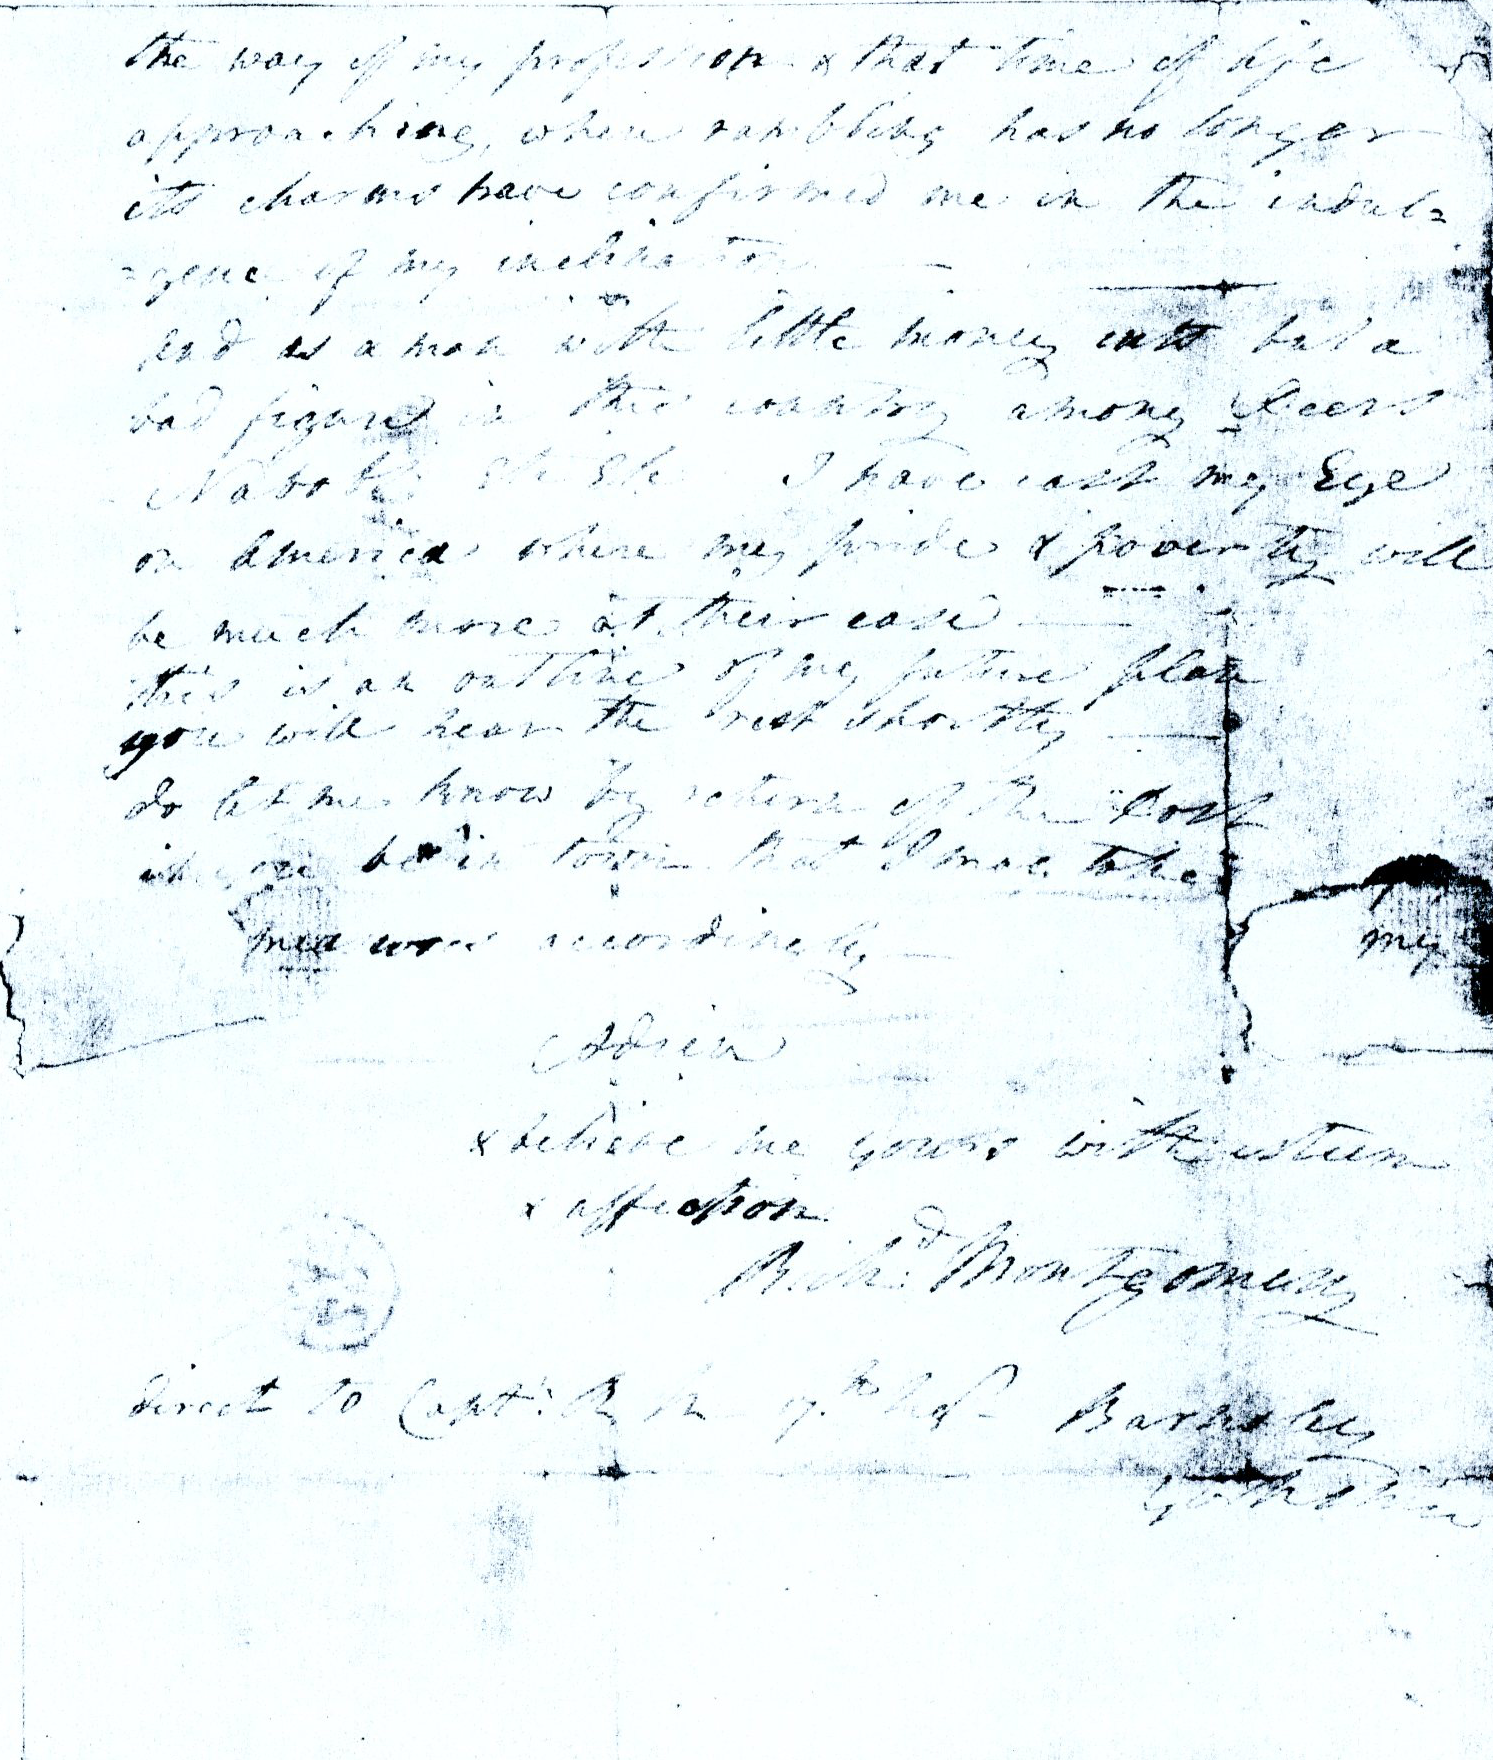 the way of my profession & that time of life
approaching, when rambling has no longer
its charms have confirmed me in the indul=
=gence of my inclination
And as a man with little money cuts but a
bad figure in this country among Peers
Nabobs &c &c I have cast my Eye
on America where my pride & poverty will
be much more at their ease
this is an outline of my future plan
you will hear the rest shortly
do let me know by return of the Post
if you be in town that I may take
my
measures accordingly
Adieu
& believe me yours with esteem
& affection
Richd Montgomery
direct to Capt. R M 17th Regt Barnsley
Yorkshire